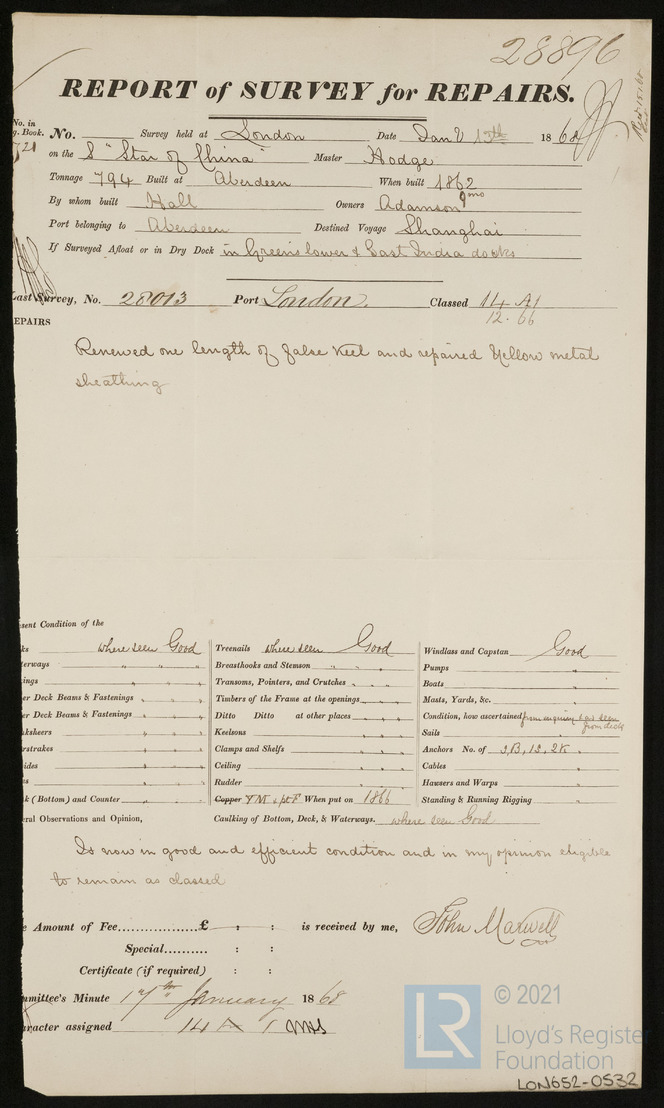 28896
REPORT of SURVEY for REPAIRS.
No. in
g. Book. No. Survey held at London Date Jany 15th 1868
721 on the S "Star of China" Master Hodge
Tonnage 794 Built at Aberdeen When built 1862 9mo
By whom built Hall Owners Adamson
Port belonging to Aberdeen Destined Voyage Shanghai
If Surveyed Afloat or in Dry Dock in Greens lower & East India docks
ast Survey, No. 28013 Port London. Classed 14 A1
12.66
EPAIRS
Renewed one length of false keel and repaired Yellow metal
sheathing
sent Condition of the
ks where seen Good Treenails where seen Good Windlass and Capstan Good
terways " " " Breasthooks and Stemson " " " Pumps "
ings " " " Transoms, Pointers, and Crutches " " " Boats "
er Deck Beams & Fastenings " " " Timbers of the Frame at the openings " " " Masts, Yards, &c. "
er Deck Beams & Fastenings " " " Ditto Ditto at other places " " " Condition, how ascertained from inquiry & as seen from deck
ksheers " " " Keelsons " " " Sails "
rstrakes " " " Clamps and Shelfs " " " Anchors No. of 3,B, 1S, 2K "
ides " " " Ceiling " " " Cables "
s " " " Rudder " " " Hawsers and Warps "
k (Bottom) and Counter " " Copper YM & pt F When put on 1866 Standing & Running Rigging "
ral Observations and Opinion, Caulking of Bottom, Deck, & Waterways. where seen Good
Is now in good and efficient condition and in my opinion eligible
to remain as classed
e Amount of Fee..................£ : : is received by me, John Maxwell
Special.......... : :
Certificate (if required) : :
mmittee's Minute 17th January 1868
aracter assigned 14 A 1
LR © 2021
Lloyd's Register
Foundation
LON652-0532